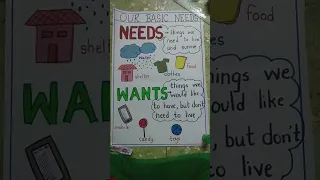 OUR BASIC NEEDS
NEEDS
things we
need to live
and survive
water
food
shelter
WANTS
things we
would like
to have, but don't
need to live
candy
toys
food
things we
would like
, but don't
to live